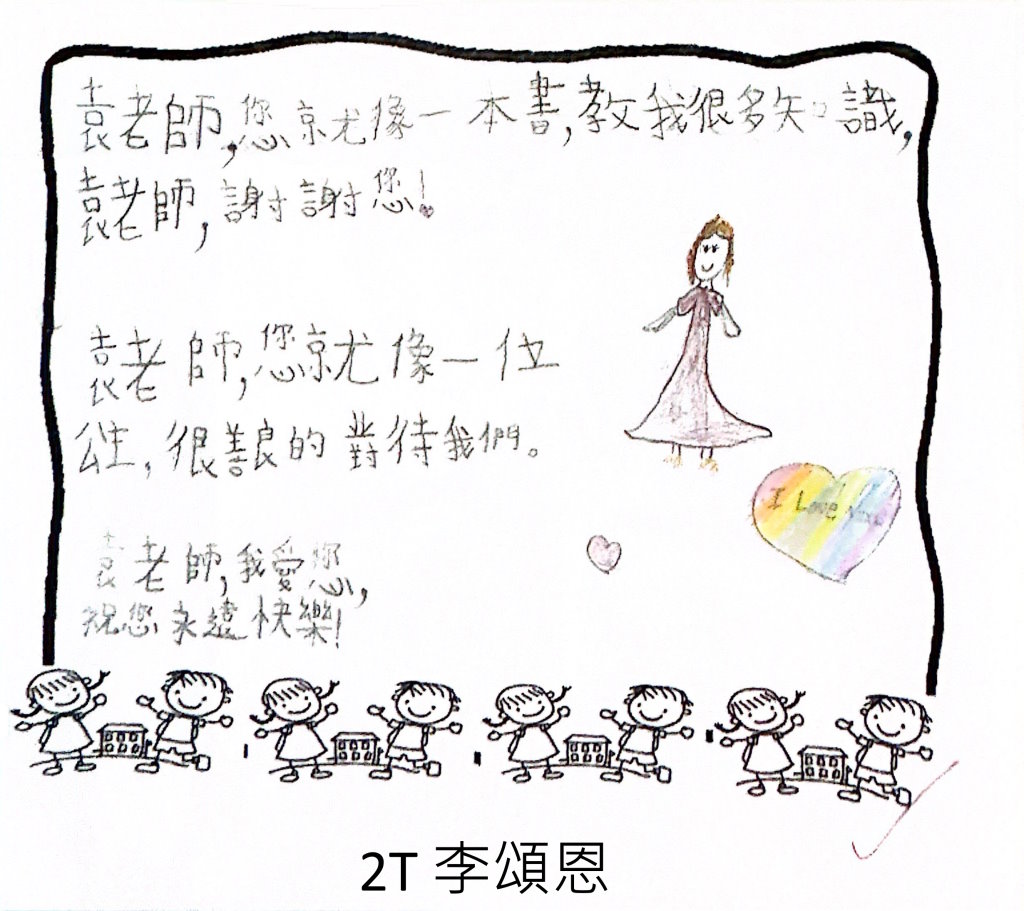 袁老師,您就像一本書,教我很多知識,
袁老師,謝謝您!
袁老師,您就像一位
公主,很善良的對待我們。
I Love You
袁老師,我愛您,
祝您永遠快樂!
2T 李頌恩